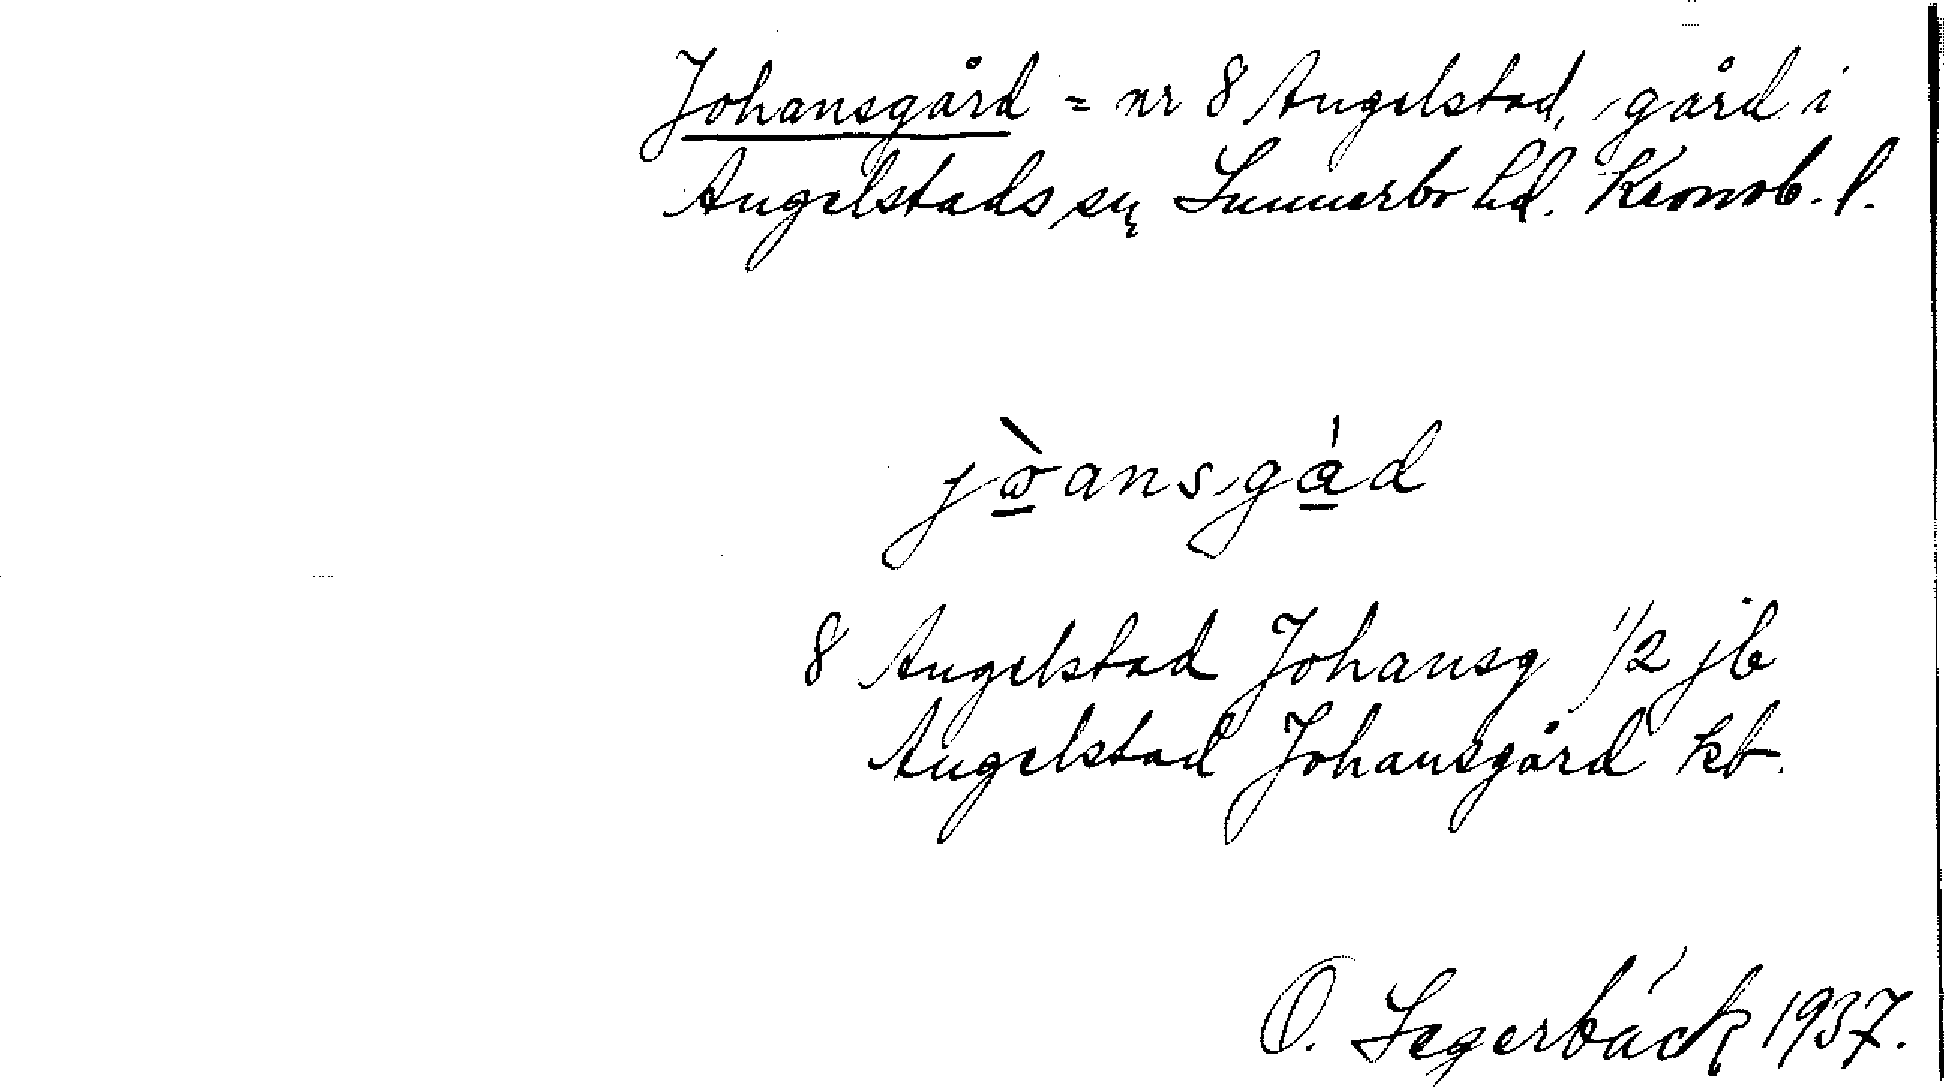 Johansgård = nr 8 Angelstad, gård i
Angelstads sn Sunnerbo hd. Kronob. l.
jò̲ansgá̲d
8 Angelstad Johansg 1/2 jb
Angelstad Johansgård kb.
O. Segerbäck 1937.